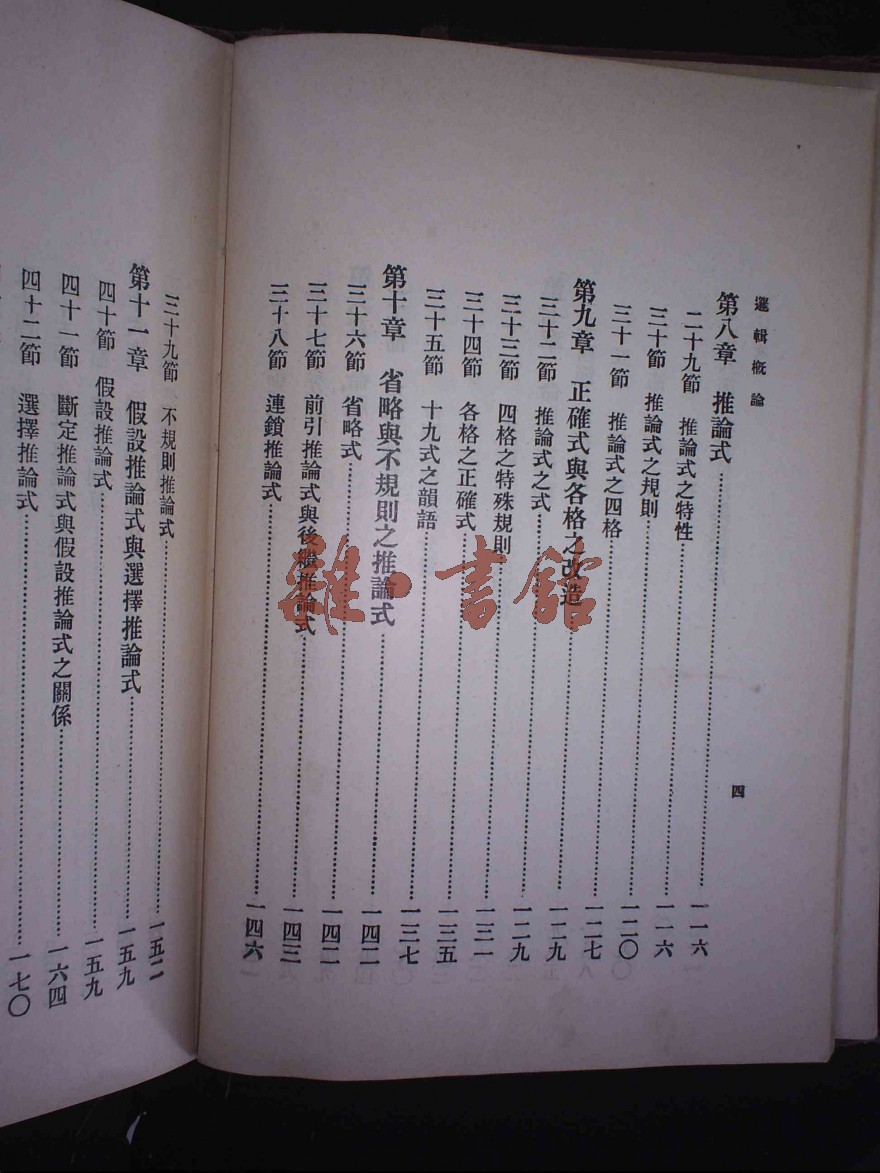 邏輯概論
四
第八章 推論式……一一六
二十九節 推論式之特性……一一六
三十節 推論式之規則……一二〇
三十一節 推論式之四格……一二七
第九章 正確式與各格之改造……一二九
三十二節 推論式之式……一二九
三十三節 四格之特殊規則……一三一
三十四節 各格之正確式……一三五
三十五節 十九式之韻語……一三七
第十章 省略與不規則之推論式……一四二
三十六節 省略式……一四二
三十七節 前引推論式與後繼推論式……一四三
三十八節 連鎖推論式……一四六
三十九節 不規則推論式……一五二
第十一章 假設推論式與選擇推論式……一五九
四十節 假設推論式……一五九
四十一節 斷定推論式與假設推論式之關係……一六四
四十二節 選擇推論式……一七〇
雜·書館